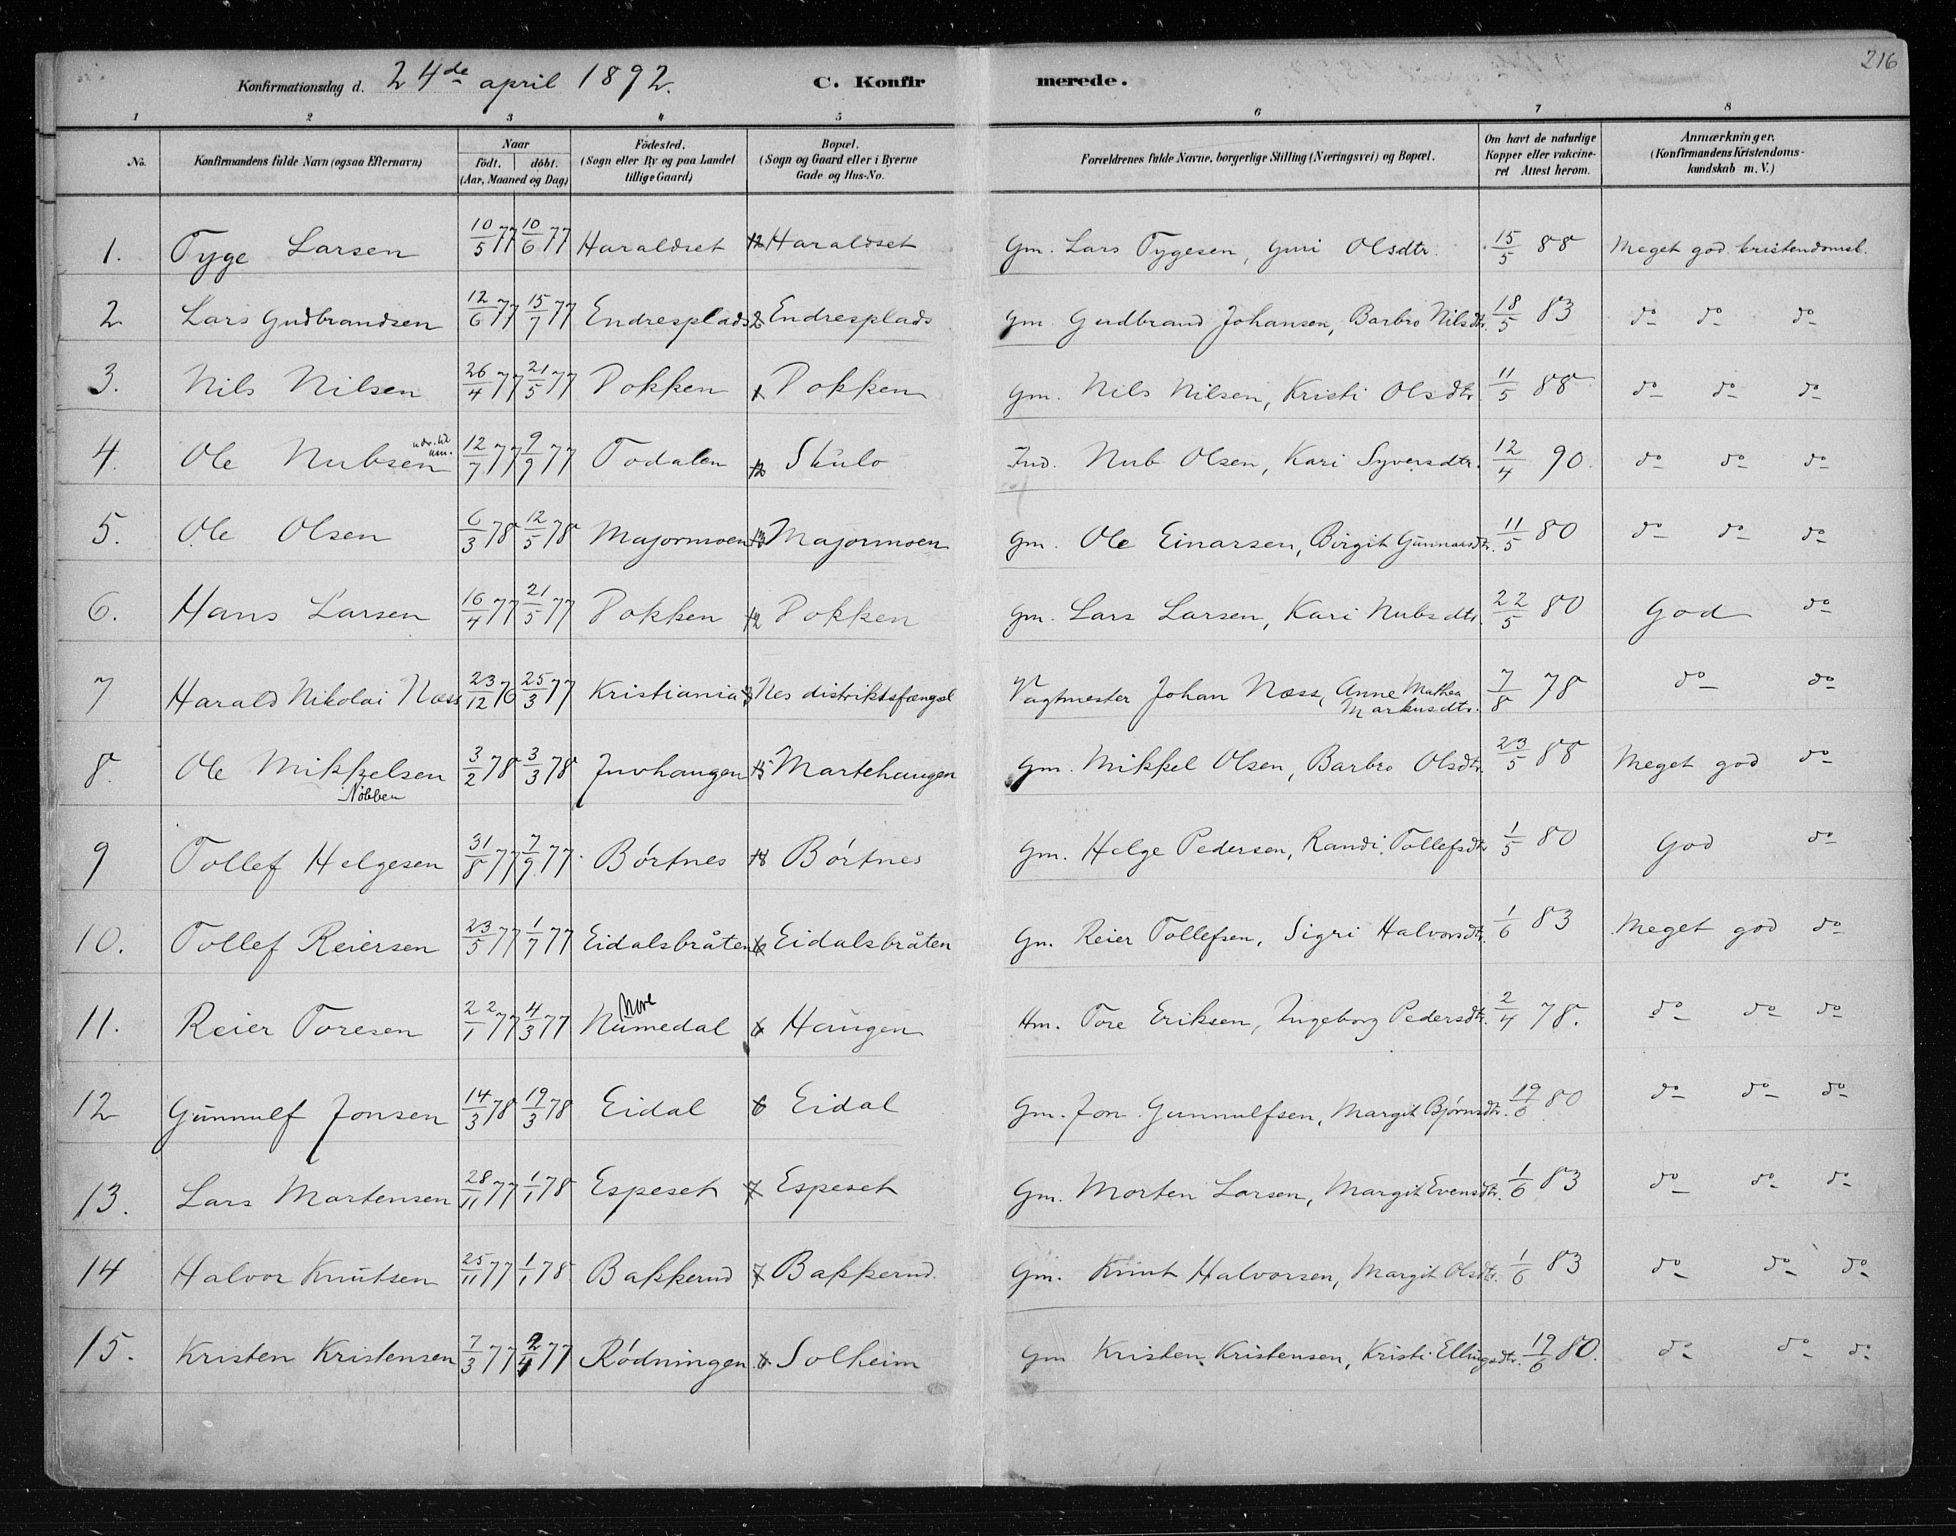 216
Konfirmationsdag d. 24de april 1892. C. Konfirmerede.
1 2 3 4 5 6 7 8
No. Konfirmandens fulde Navn (ogsaa Efternavn) Naar født. døbt. (Aar, Maaned og Dag) Fødested. (Sogn eller By og paa Landet tillige Gaard) Bopæl. (Sogn og Gaard eller i Byerne Gade og Hus-No. Forældrenes fulde Navne, borgerlige Stilling (Næringsvei) og Bopæl. Om havt de naturlige Kopper eller vakcineret Attest herom. Anmærkninger. (Konfirmandens Kristendomskundskab m. V.)
1. Tyge Larsen 10/5 77 10/6 77 Haraldset 12 Haraldset Gm. Lars Tygesen, Guri Olsdtr. 15/5 88 Meget god kristendomsk.
2 Lars Gudbrandsen 12/6 77 15/7 77 Endresplads 2 Endresplads Gm. Gudbrand Johansen, Barbro Nilsdtr. 18/5 83 do do do
3. Nils Nilsen 26/4 77 21/5 77 Dokken 1 Dokken Gm. Nils Nilsen, Kristi Olsdtr. 11/5 88 do do do
4. Ole Nubsen 12/7 77 9/9 77 Todalen 12 Skulo Ind. Nub Olsen, Kari Syversdtr. 12/4 90. do do do
5. Ole Olsen 6/3 78 12/5 78 Majormoen 13 Majormoen Gm. Ole Einarsen, Birgit Gunnarsdtr. 11/5 80 do do do
6. Hans Larsen 16/4 77 21/5 77 Dokken 12 Dokken Gm. Lars Larsen, Kari Nubsdtr. 22/5 80 God do
7 Harald Nikolai Næss 23/12 76 25/3 77 Kristiania 3 Nes distriktsfængsel Vagtmester Johan Næss, Anne Mathea Markusdtr. 7/8 78 do do
8. Ole Mikkelsen Nøbben 3/2 78 3/3 78 Juvhaugen 15 Martehaugen Gm. Mikkel Olsen, Barbro Olsdtr. 23/5 88 Meget god do
9 Tollef Helgesen 31/8 77 7/9 77. Børtnes 18 Børtnes Gm. Helge Pedersen, Randi Tollefsdtr 1/5 80 God do
10. Tollef Reiersen 23/5 77 1/7 77 Eidalsbråten 6 Eidalsbråten Gm. Reier Tollefsen, Sigri Halvorsdtr. 1/6 83 Meget god do
11. Reier Toresen 22/1 77 4/3 77 Nore Numedal 6 Haugen Hm. Tore Eriksen, Ingeborg Pedersdtr. 2/4 78. do do do
12 Gunnulf Jonsen 14/3 78 19/3 78 Eidal 6 Eidal Gm. Jon Gunnulfsen, Margit Bjørnsdtr. 19/6 80 do do do
13. Lars Mortensen 28/11 77 1/1 78 Espeset 7 Espeset Gm. Morten Larsen, Margit Evensdtr. 1/6 83 do do do
14 Halvor Knutsen 25/11 77 1/1 78 Bakkerud 7 Bakkerud. Gm. Knut Halvorsen, Margit Olsdtr. 1/6 83 do do do
15. Kristen Kristensen 7/3 77 2/4 77 Rødningen 6 Solheim Gm Kristen Kristensen, Kristi Ellingsdtr. 19/6 80. do do do